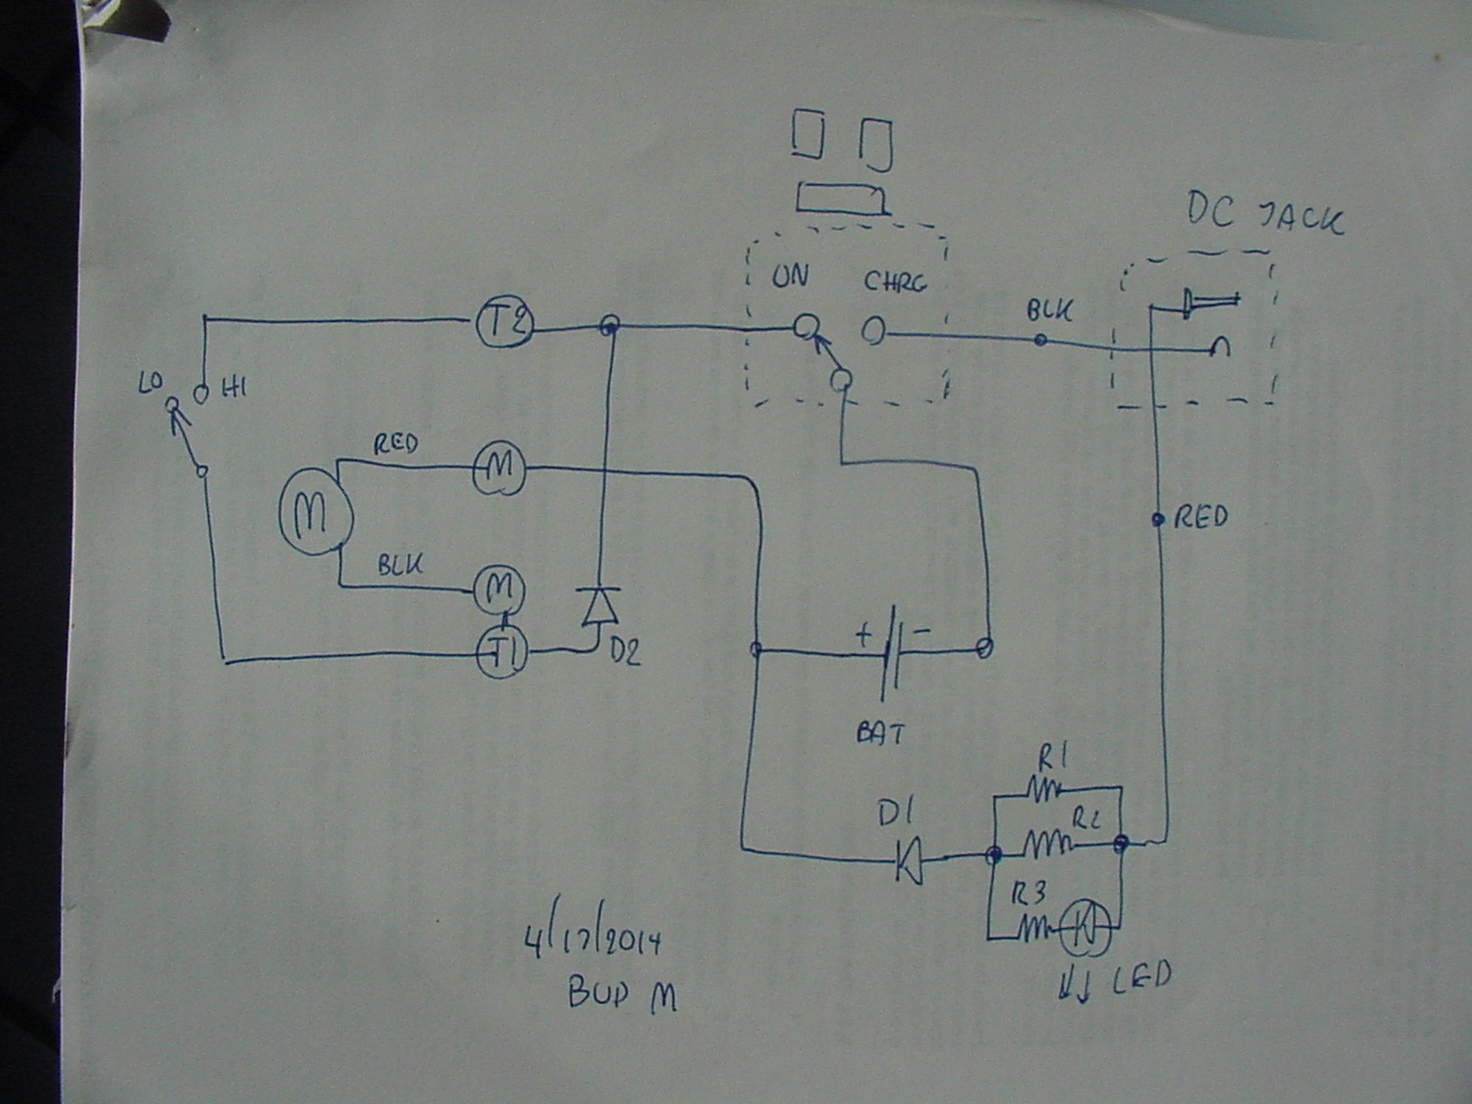 DC JACK
ON CHRG
BLK
T2
LO HI
RED
M
M
BLK
M
T1
D2
RED
+ -
BAT
R1
D1
R2
R3
LED
4/17/2014
BUD M